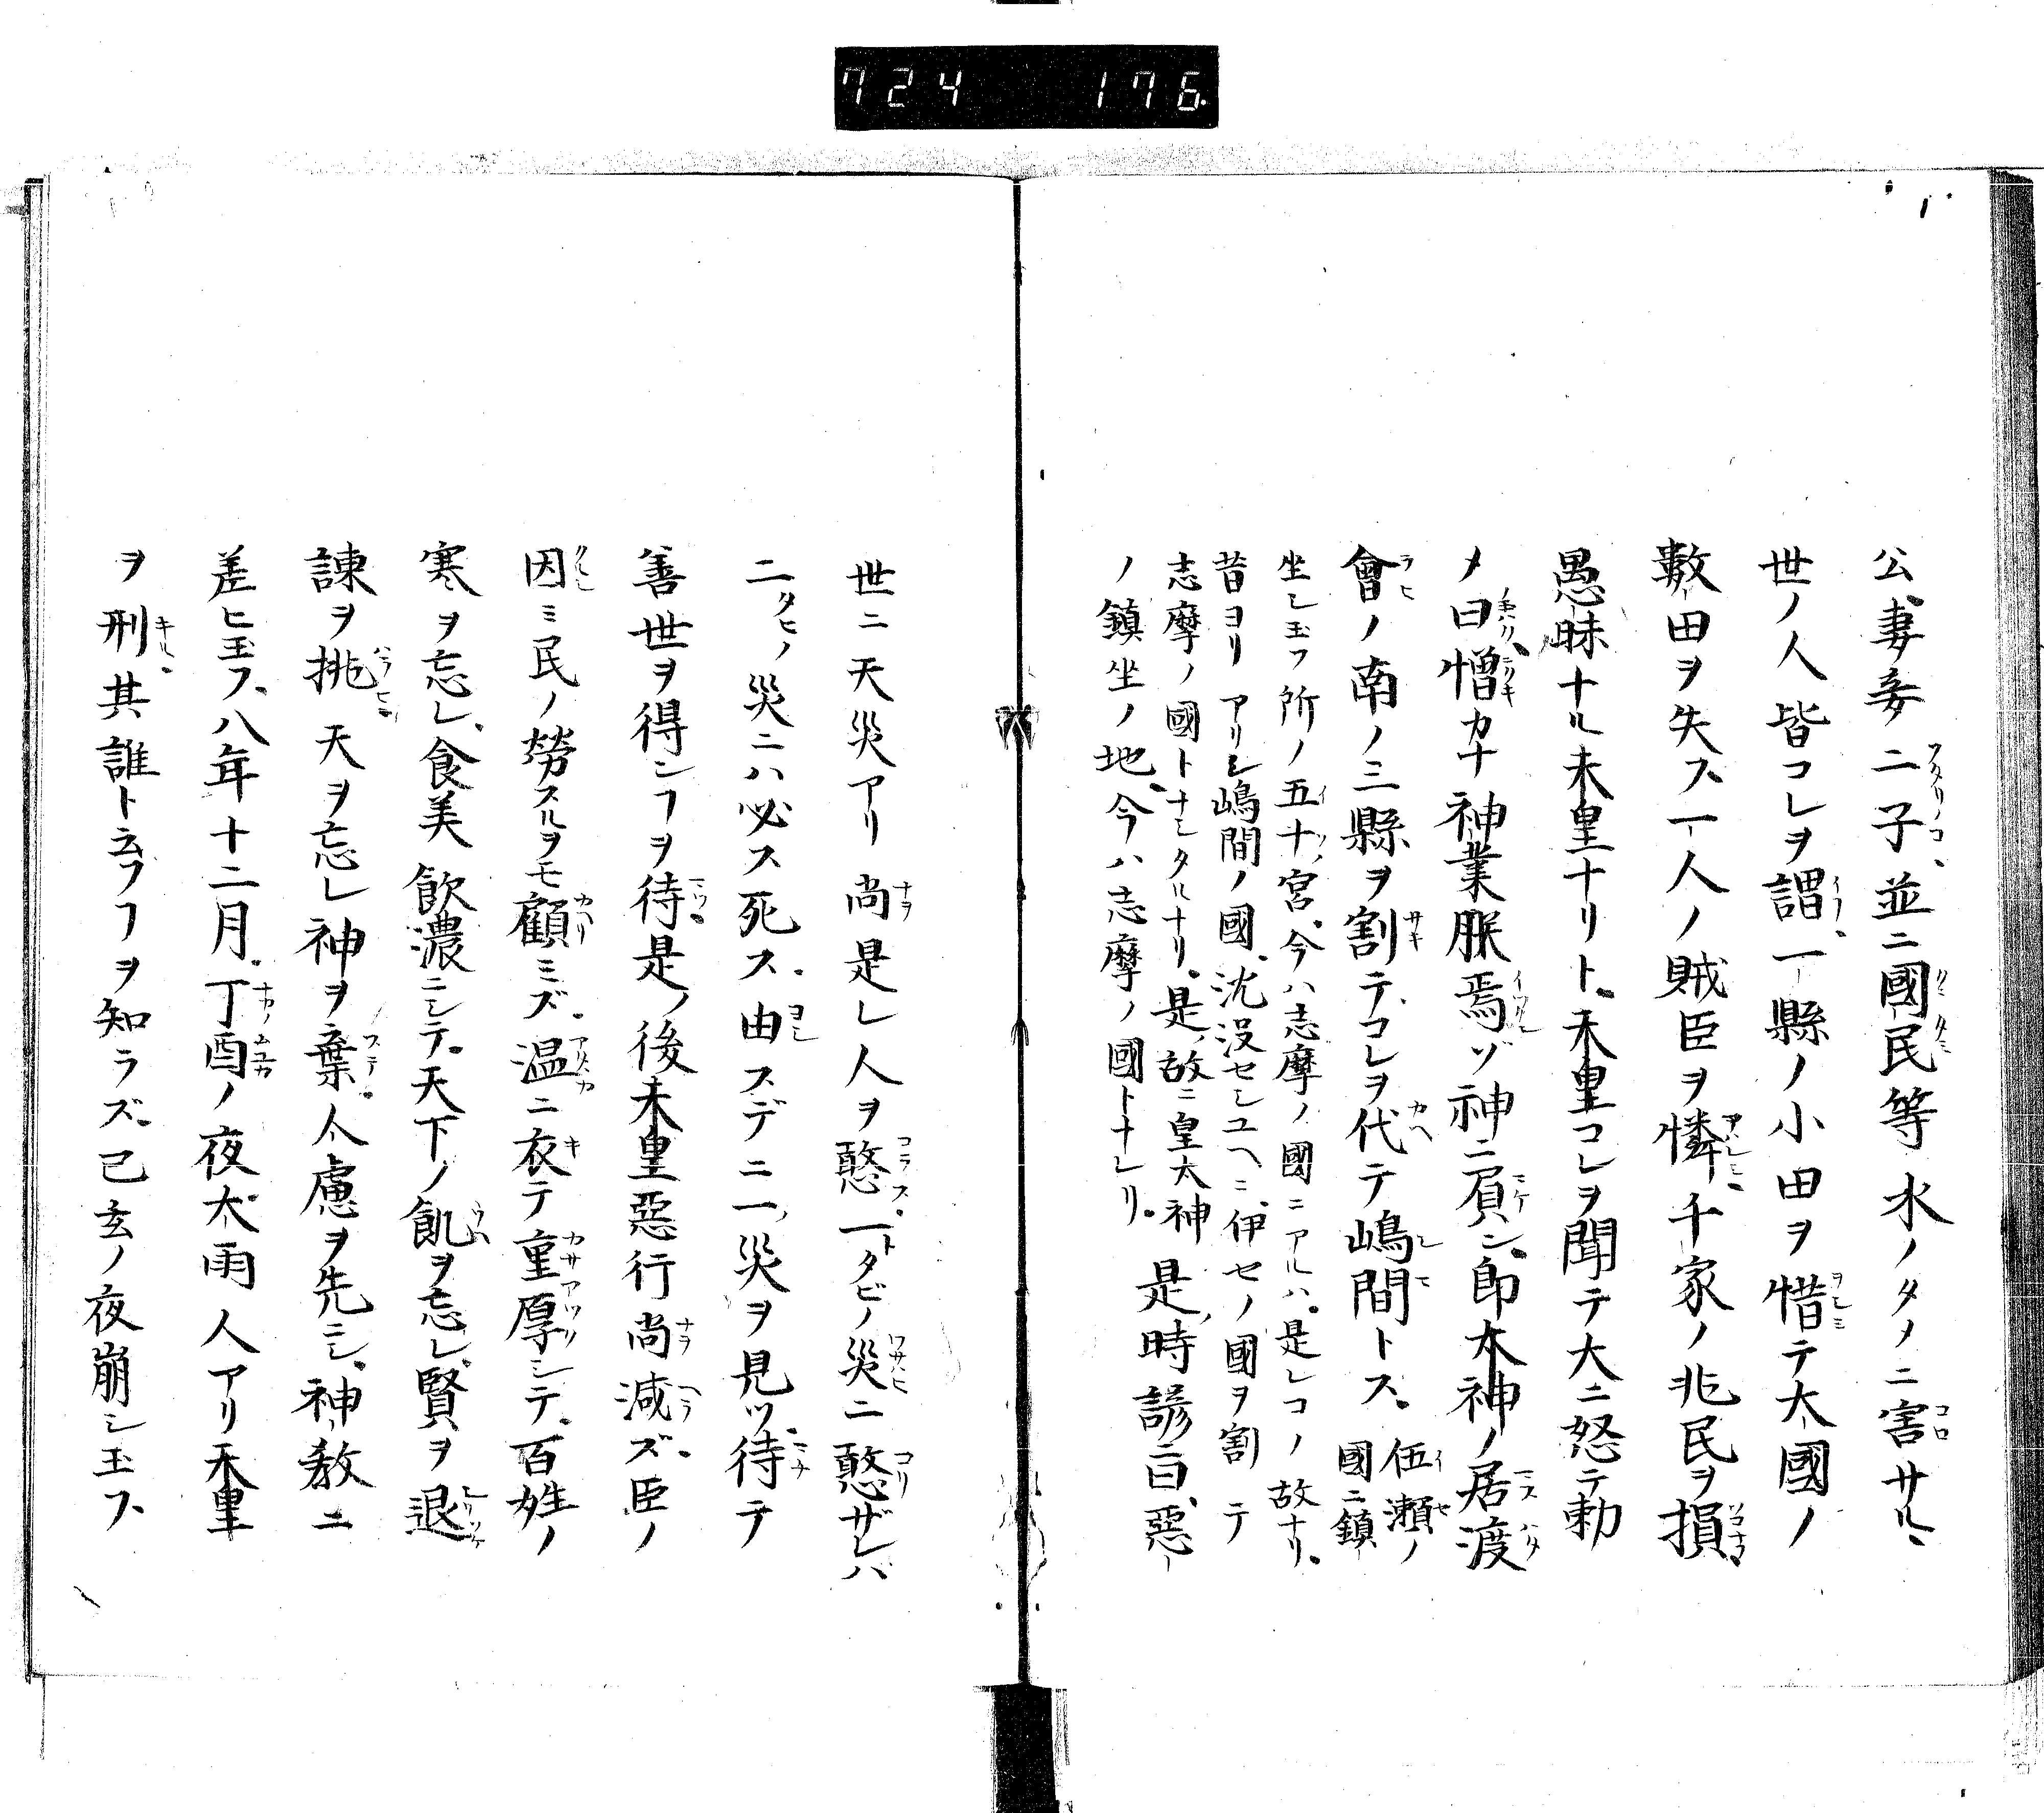 724 176
公、妻妾二子、並ニ國民等水ノタメニ害サル、
世ノ人皆コレヲ謂、一縣ノ小田ヲ惜テ大國ノ
數田ヲ失ス、一人ノ賊臣ヲ憐、千家ノ兆民ヲ損、
愚昧ナル天皇ナリト、天皇コレヲ聞テ大ニ怒テ勅
メ曰憎カナ神業朕焉ゾ神ニ負ン、即大神ノ居渡
會ノ南ノ三縣ヲ割テ、コレヲ代テ嶋間トス。伍瀬ノ國ニ鎮
坐シ玉フ所ノ五十宮、今ハ志摩ノ國ニアルハ、是レコノ故ナリ。
昔ヨリアリシ嶋間ノ國、沈没セシユヘニ、伊セノ國ヲ割テ
志摩ノ國トナシタルナリ。是故ニ皇大神
ノ鎮坐ノ地、今ハ志摩ノ國トナレリ。
是時諺ニ曰、惡
世ニ天災アリ尚是レ人ヲ憗、一タビノ災ニ憗ザレバ
二タヒノ災ニハ必ス死ス。由スデニ一災ヲ見ツ、待テ
善世ヲ得ンフヲ待、是ノ後天皇惡行尚減ズ。臣ノ
因ミ民ノ勞スルヲモ顧ミズ。温ニ衣テ重厚シテ。百姓ノ
寒ヲ忘レ、食美飲濃ニシテ。天下ノ飢ヲ忘レ、賢ヲ退
諫ヲ挑天ヲ忘レ神ヲ棄。人慮ヲ先ニシ、神教ニ
差ヒ玉フ、八年十二月。丁酉ノ夜大雨人アリ天皇
ヲ刑其誰ト云フフヲ知ラズ、己亥ノ夜崩シ玉フ、